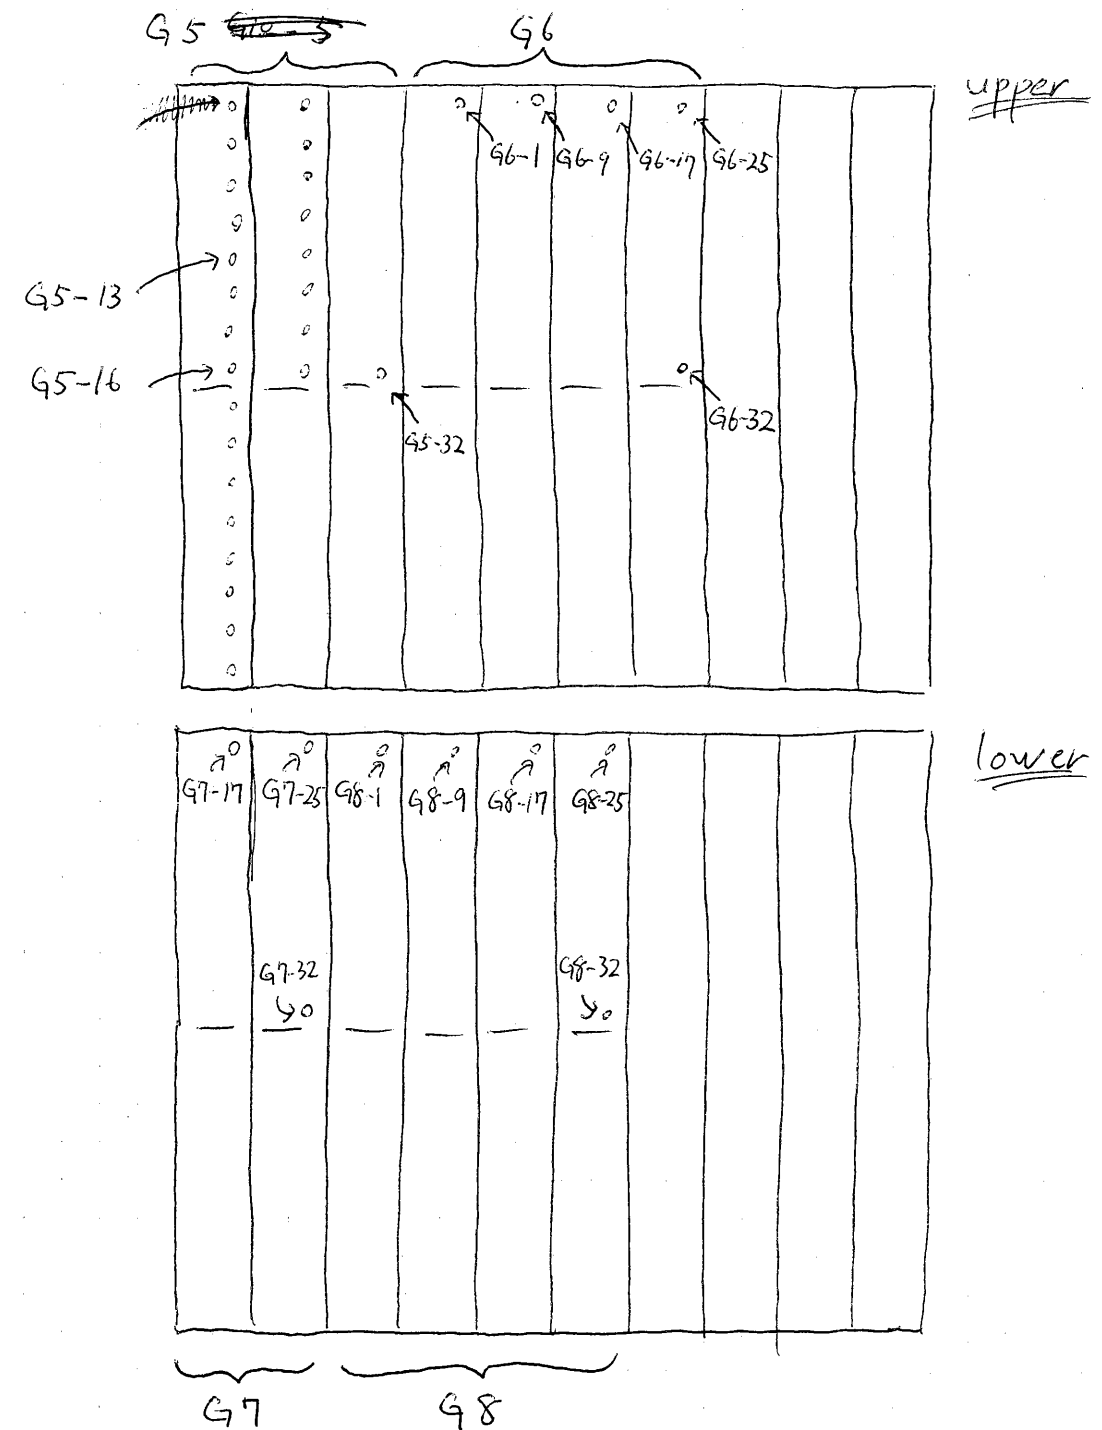 G5 G6
upper
G6-1 G6-9 G6-17 G6-25
G5-13
G5-16
G5-32
G6-32
lower
G7-17 G7-25 G8-1 G8-9 G8-17 G8-25
G7-32 G8-32
G7 G8